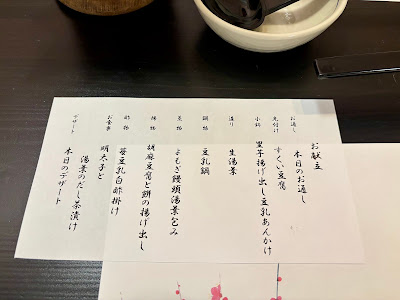 お献立
お通し 本日のお通し
先付け すくい豆腐
小鉢 里芋揚げ出し豆乳あんかけ
造り 生湯葉
鍋物 豆乳鍋
蒸物 よもぎ饅頭湯葉包み
揚物 胡麻豆腐と餅の揚げ出し
酢物 苺豆乳白酢掛け
お食事 明太子と
湯葉のだし茶漬け
デザート 本日のデザート